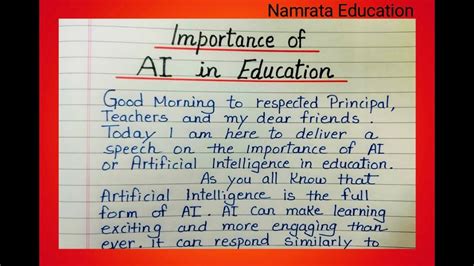 Namrata Education
Importance of
AI in Education
Good Morning to respected Principal,
Teachers and my dear friends.
Today I am here to deliver a
speech on the importance of AI
or Artificial Intelligence in education.
As you all know that
Artificial Intelligence is the full
form of AI. AI can make learning
exciting and more engaging than
ever. It can respond similarly to